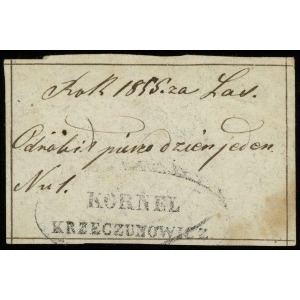 Rok 1855. za Las.
Odrobił pieszo dzień jeden.
Nu 1.
KORNEL
KRZECZUNOWICZ